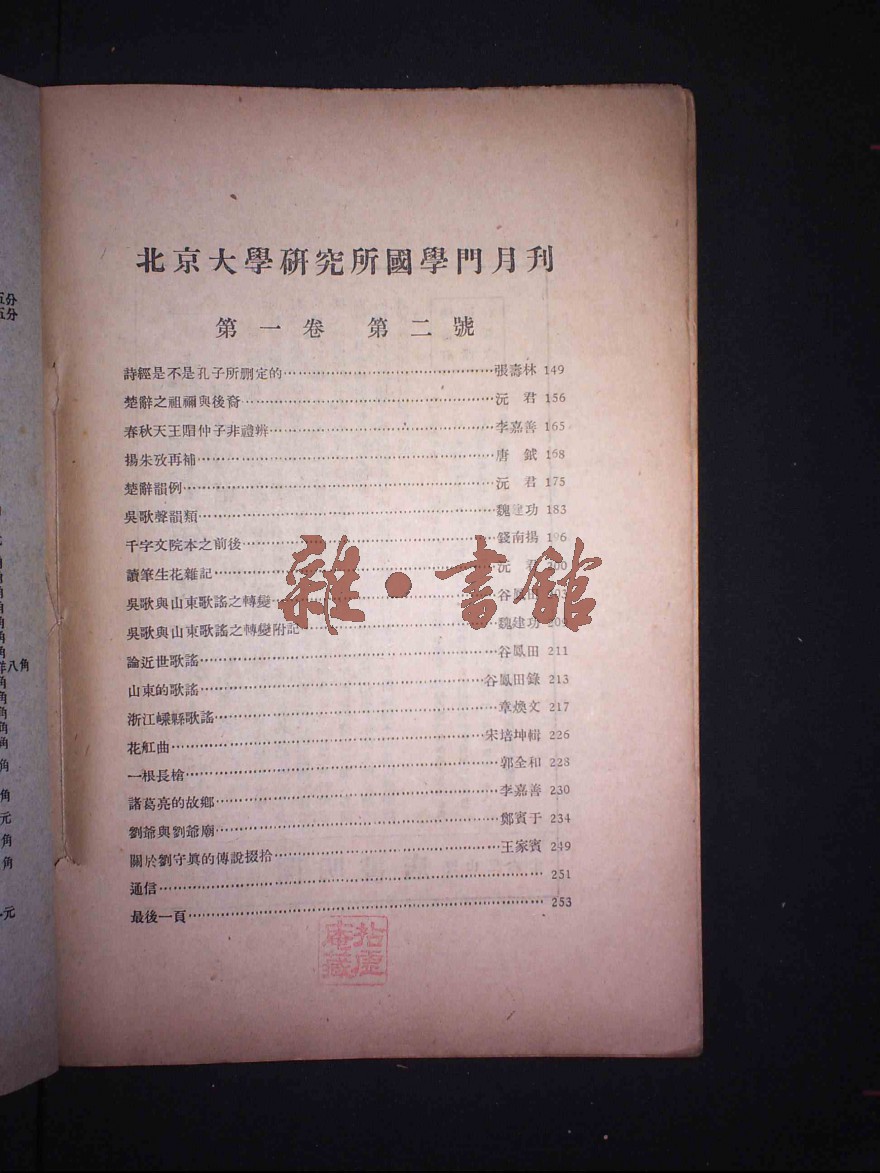 北京大學研究所國學門月刊
第一卷 第二號
詩經是不是孔子所删定的……張壽林 149
楚辭之祖禰與後裔……沅君 156
春秋天王賵仲子非禮辨……李嘉善 165
揚朱攷再補……唐鉞 168
楚辭韻例……沅君 175
吳歌聲韻類……魏建功 183
千字文院本之前後……錢南揚 196
讀筆生花雜記……沅君 200
吳歌與山東歌謠之轉變……谷鳳田 203
吳歌與山東歌謠之轉變附記……魏建功
論近世歌謠……谷鳳田 211
山東的歌謠……谷鳳田錄 213
浙江嵊縣歌謠……章煥文 217
花舡曲……宋培坤輯 226
一根長槍……郭全和 228
諸葛亮的故鄉……李嘉善 230
劉爺與劉爺廟……鄭賓于 234
關於劉守眞的傳說掇拾……王家賓 249
通信……251
最後一頁……253
雜·書館
五分
五分
洋八角
角
元
角
角
元